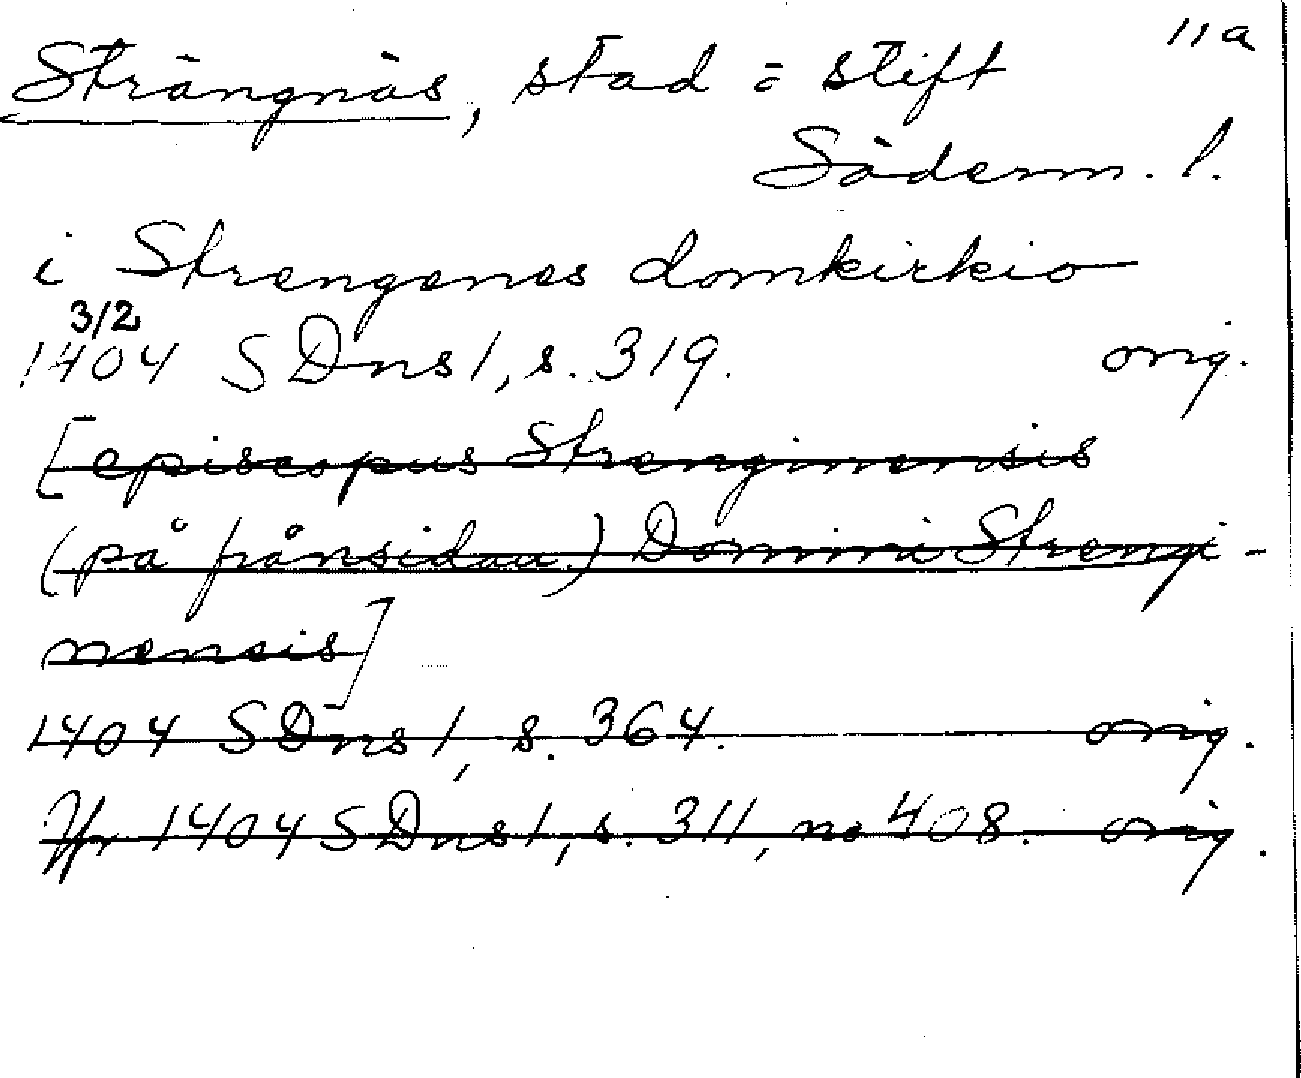 11a
Strängnäs, stad = stift
Söderm. l.
i Strengenes domkirkio
3/2
1404 SDns 1, s. 319. orig.
[episcopus Strenginensis
(på frånsidan) Domini Strengi-
nensis]
1404 SDns 1, s. 364. orig.
Jfr 1404 SDns 1, s. 311, no 408. orig.